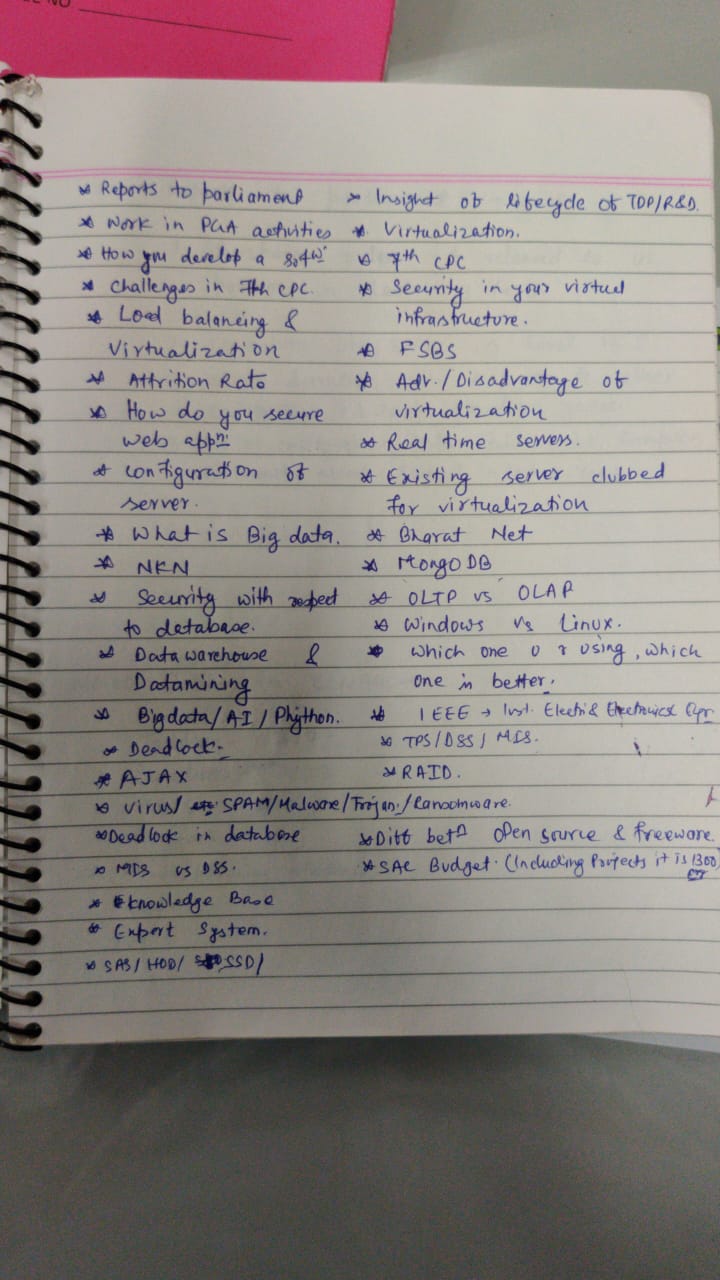 * Reports to parliament
* Work in PGA activities
* How you develop a softw.
* Challenges in 7th CPC.
* Load balancing &
Virtualization
* Attrition Rate
* How do you secure
web appn.
* configuration of
server.
* What is Big data.
* NKN
* Security with respect
to database.
* Data warehouse &
Datamining
* Bigdata/AI/Phython.
* Deadlock.
* AJAX
* Virus/ SPAM/Malware/Trojan/Ransomware.
* Deadlock in database
* MIS vs DSS.
* Knowledge Base
* Expert System.
* SAS/HDD/ SSD/
* Insight of lifecycle of TDP/R&D.
* Virtualization.
* 7th CPC
* Security in your virtual
infrastructure.
* FSBS
* Adv./Disadvantage of
virtualization
* Real time servers.
* Existing server clubbed
for virtualization
* Bharat Net
* MongoDB
* OLTP vs OLAP
* Windows Vs Linux.
* which one u r using, which
one is better.
* IEEE → Inst. Electri & Electronics
* TPS/DSS/MIS.
* RAID.
* Diff betn open source & freeware.
* SAC Budget. (Including Projects it is 1300